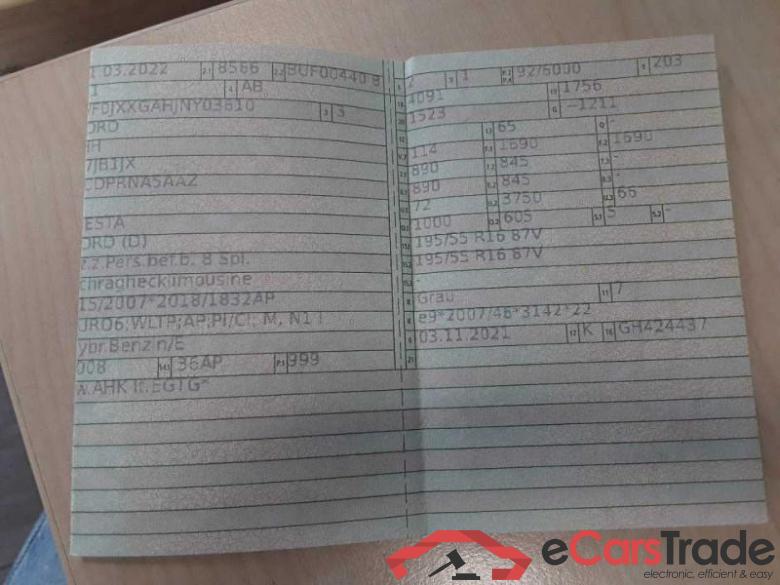 03.2022 2.1 8566 2.2 BUF00440 8
1 4 AB
VF0JXXGAHJNY03610 3 3
ORD
7JB1JX
CDPRNA5AAZ
ESTA
ORD (D)
z.Pers.bef.b. 8 Spl.
chraghecklimousine
15/2007*2018/1832AP
URO6;WLTP;AP;PI/CI; M, N1 I
ybr.Benzin/E
008 14.1 36AP P.1 999
w.AHK lt.EGTG*
2 9 1 92/6000 T 203
4091 1756
1523 G -1211
65 Q -
114 1690 1690
890 845 -
890 845 -
72 3750 66
1000 605 S.1 5 S.2 -
195/55 R16 87V
195/55 R16 87V
-
Grau 11 7
e9*2007/46*3142*22
03.11.2021 17 K 16 GH424437
21
eCarsTrade
electronic, efficient & easy